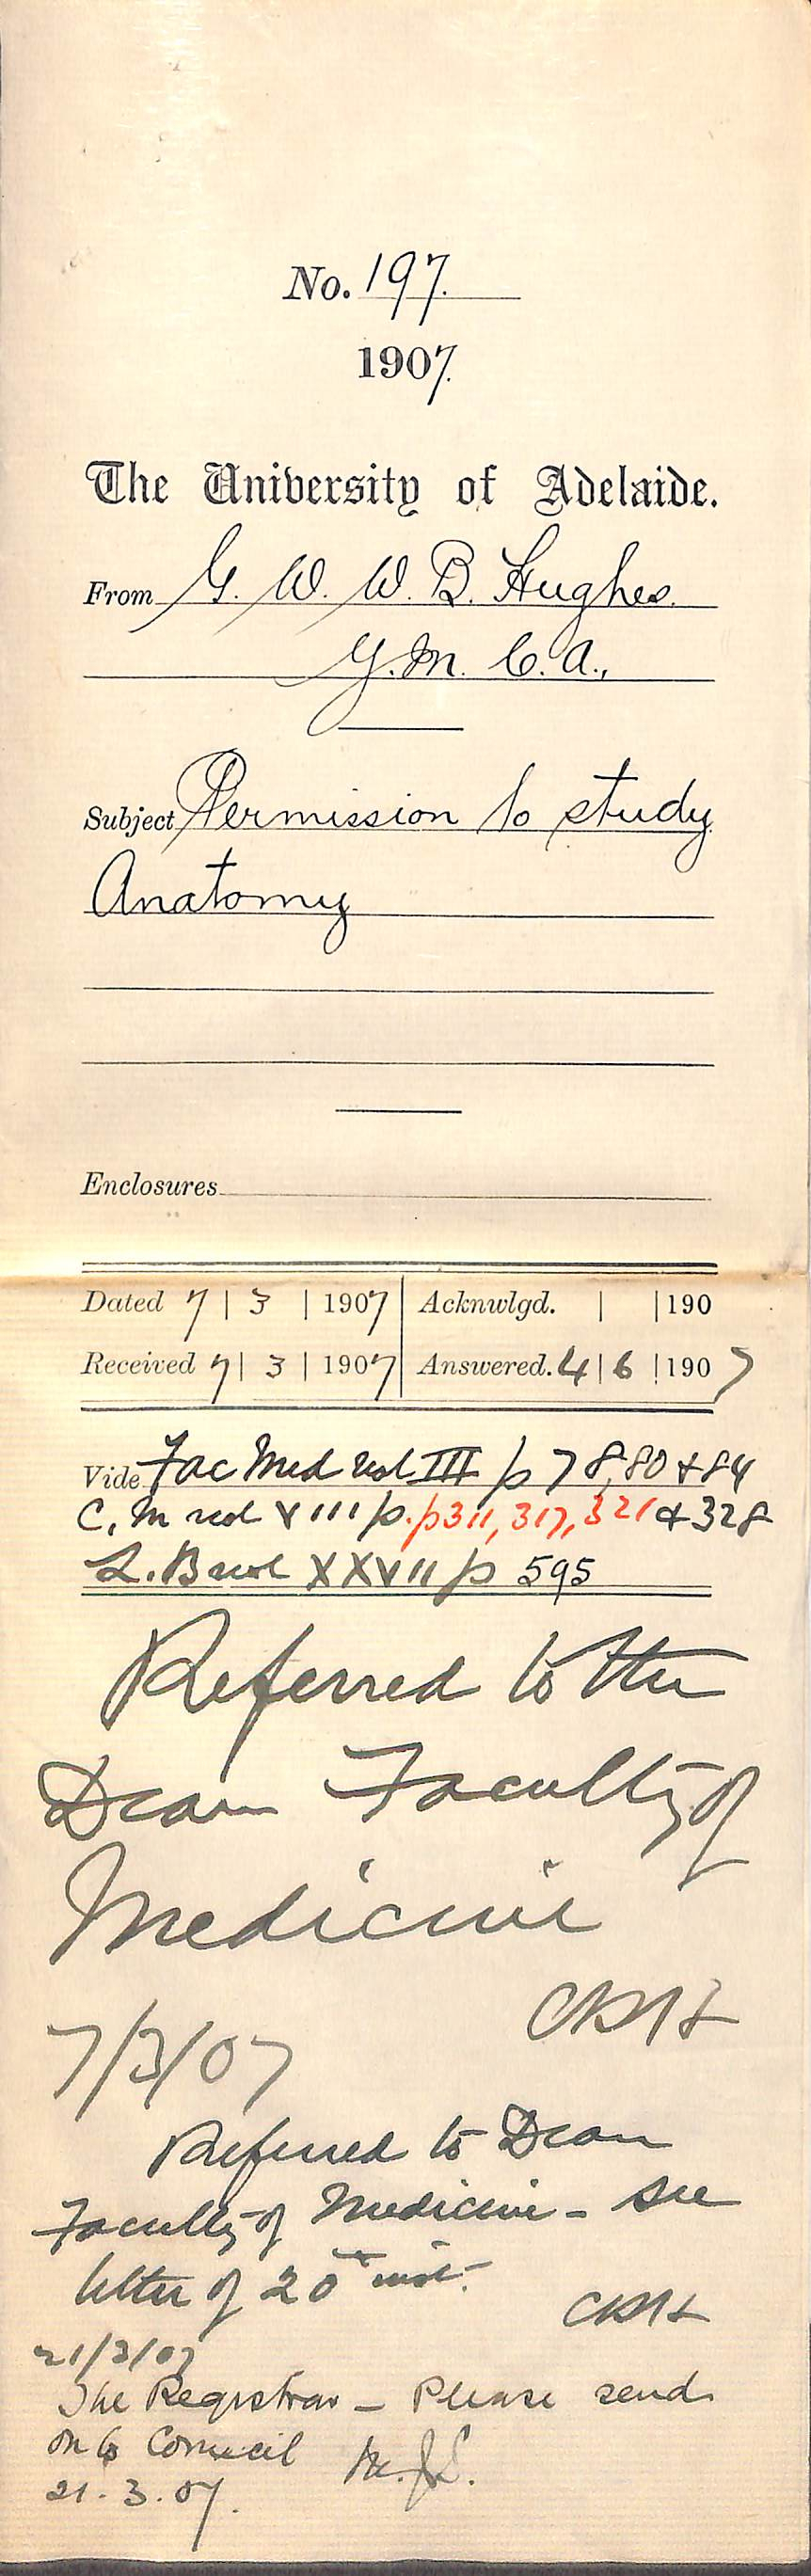 No. 197.
1907.
The University of Adelaide.
From G. W. W. B. Hughes.
Y. M. C. A.,
Subject Permission to study
Anatomy
Enclosures
Dated 7 | 3 | 1907 Acknwlgd. | | 190
Received 7 | 3 | 1907 Answered. 4 | 6 | 1907
Vide Fac Med vol III p 78, 80 + 84
C. M vol VIII p. p311, 317, 321 & 328
L. B vol XXVII p 595
Referred to the
Dean Faculty of
Medicine
7/3/07
Referred to Dean
Faculty of Medicine - see
letter of 20th inst.
21/3/07
The Registrar - Please send
on to Council
21. 3. 07.